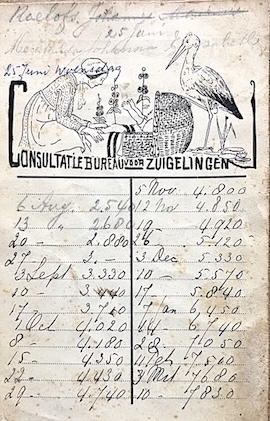 Roelofs, Johanna
25 Juni
25 Juni Woensdag
CONSULTATIEBUREAU VOOR ZUIGELINGEN
5 Nov. 4.800
6 Aug. 2.540 12 Nov 4.850
13 " 2.680 19 - 4.920
20 - 2.880 26 - 5.120
27 - 2.- 3 Dec 5.330
3 Sept 3.330 10 - 5.570
10 - 3.440 17 - 5.840
17 - 3.740 7 Jan 6.450
1 Oct 4.020 14 6.740
8 - 4.180 28 - 7.050
15 - 4.350 11 Feb 7.560
22 - 4.430 3 Mrt 7.680
29 - 4.740 10 - 7.830